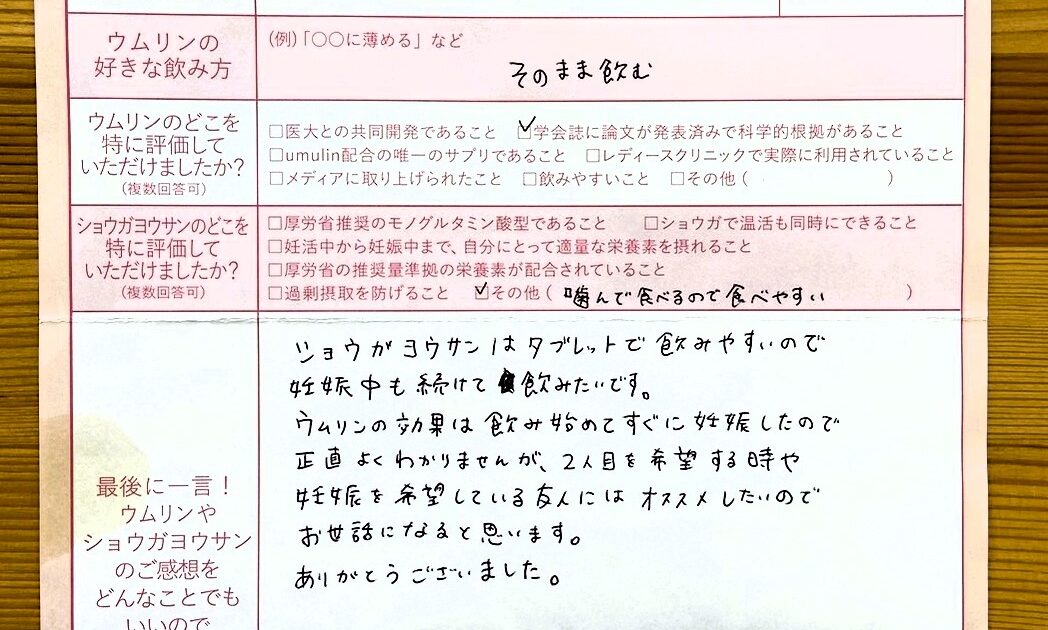 ウムリンの
好きな飲み方
(例)「○○に薄める」など
そのまま飲む
ウムリンのどこを
特に評価して
いただけましたか?
(複数回答可)
□医大との共同開発であること ☑学会誌に論文が発表済みで科学的根拠があること
□umulin配合の唯一のサプリであること □レディースクリニックで実際に利用されていること
□メディアに取り上げられたこと □飲みやすいこと □その他( )
ショウガヨウサンのどこを
特に評価して
いただけましたか?
(複数回答可)
□厚労省推奨のモノグルタミン酸型であること □ショウガで温活も同時にできること
□妊活中から妊娠中まで、自分にとって適量な栄養素を摂れること
□厚労省の推奨量準拠の栄養素が配合されていること
□過剰摂取を防げること ☑その他( 噛んで食べるので食べやすい )
最後に一言!
ウムリンや
ショウガヨウサン
のご感想を
どんなことでも
いいので
ショウガヨウサンはタブレットで飲みやすいので
妊娠中も続けて飲みたいです。
ウムリンの効果は飲み始めてすぐに妊娠したので
正直よくわかりませんが、2人目を希望する時や
妊娠を希望している友人にはオススメしたいので
お世話になると思います。
ありがとうございました。